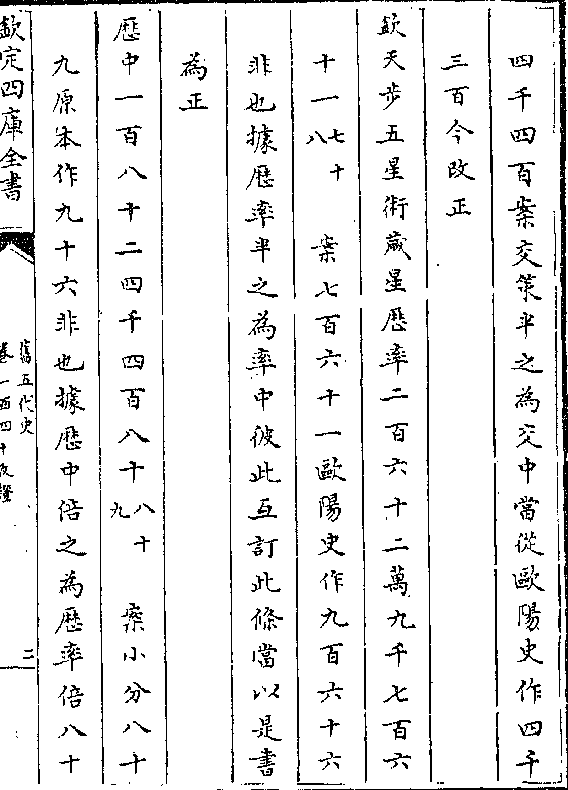 四千四百案交策半之為交中當從歐陽史作四千
三百今改正
欽天步五星術歲星歷率二百六十二萬九千七百六
十一七十八　案七百六十一歐陽史作九百六十六
非也據歷率半之為率中彼此互訂此條當以是書
為正
歷中一百八十二四千四百八十八十九　案小分八十
九原本作九十六非也據歷中倍之為歷率倍八十
欽定四庫全書
舊五代史
卷一百四十攷證
二